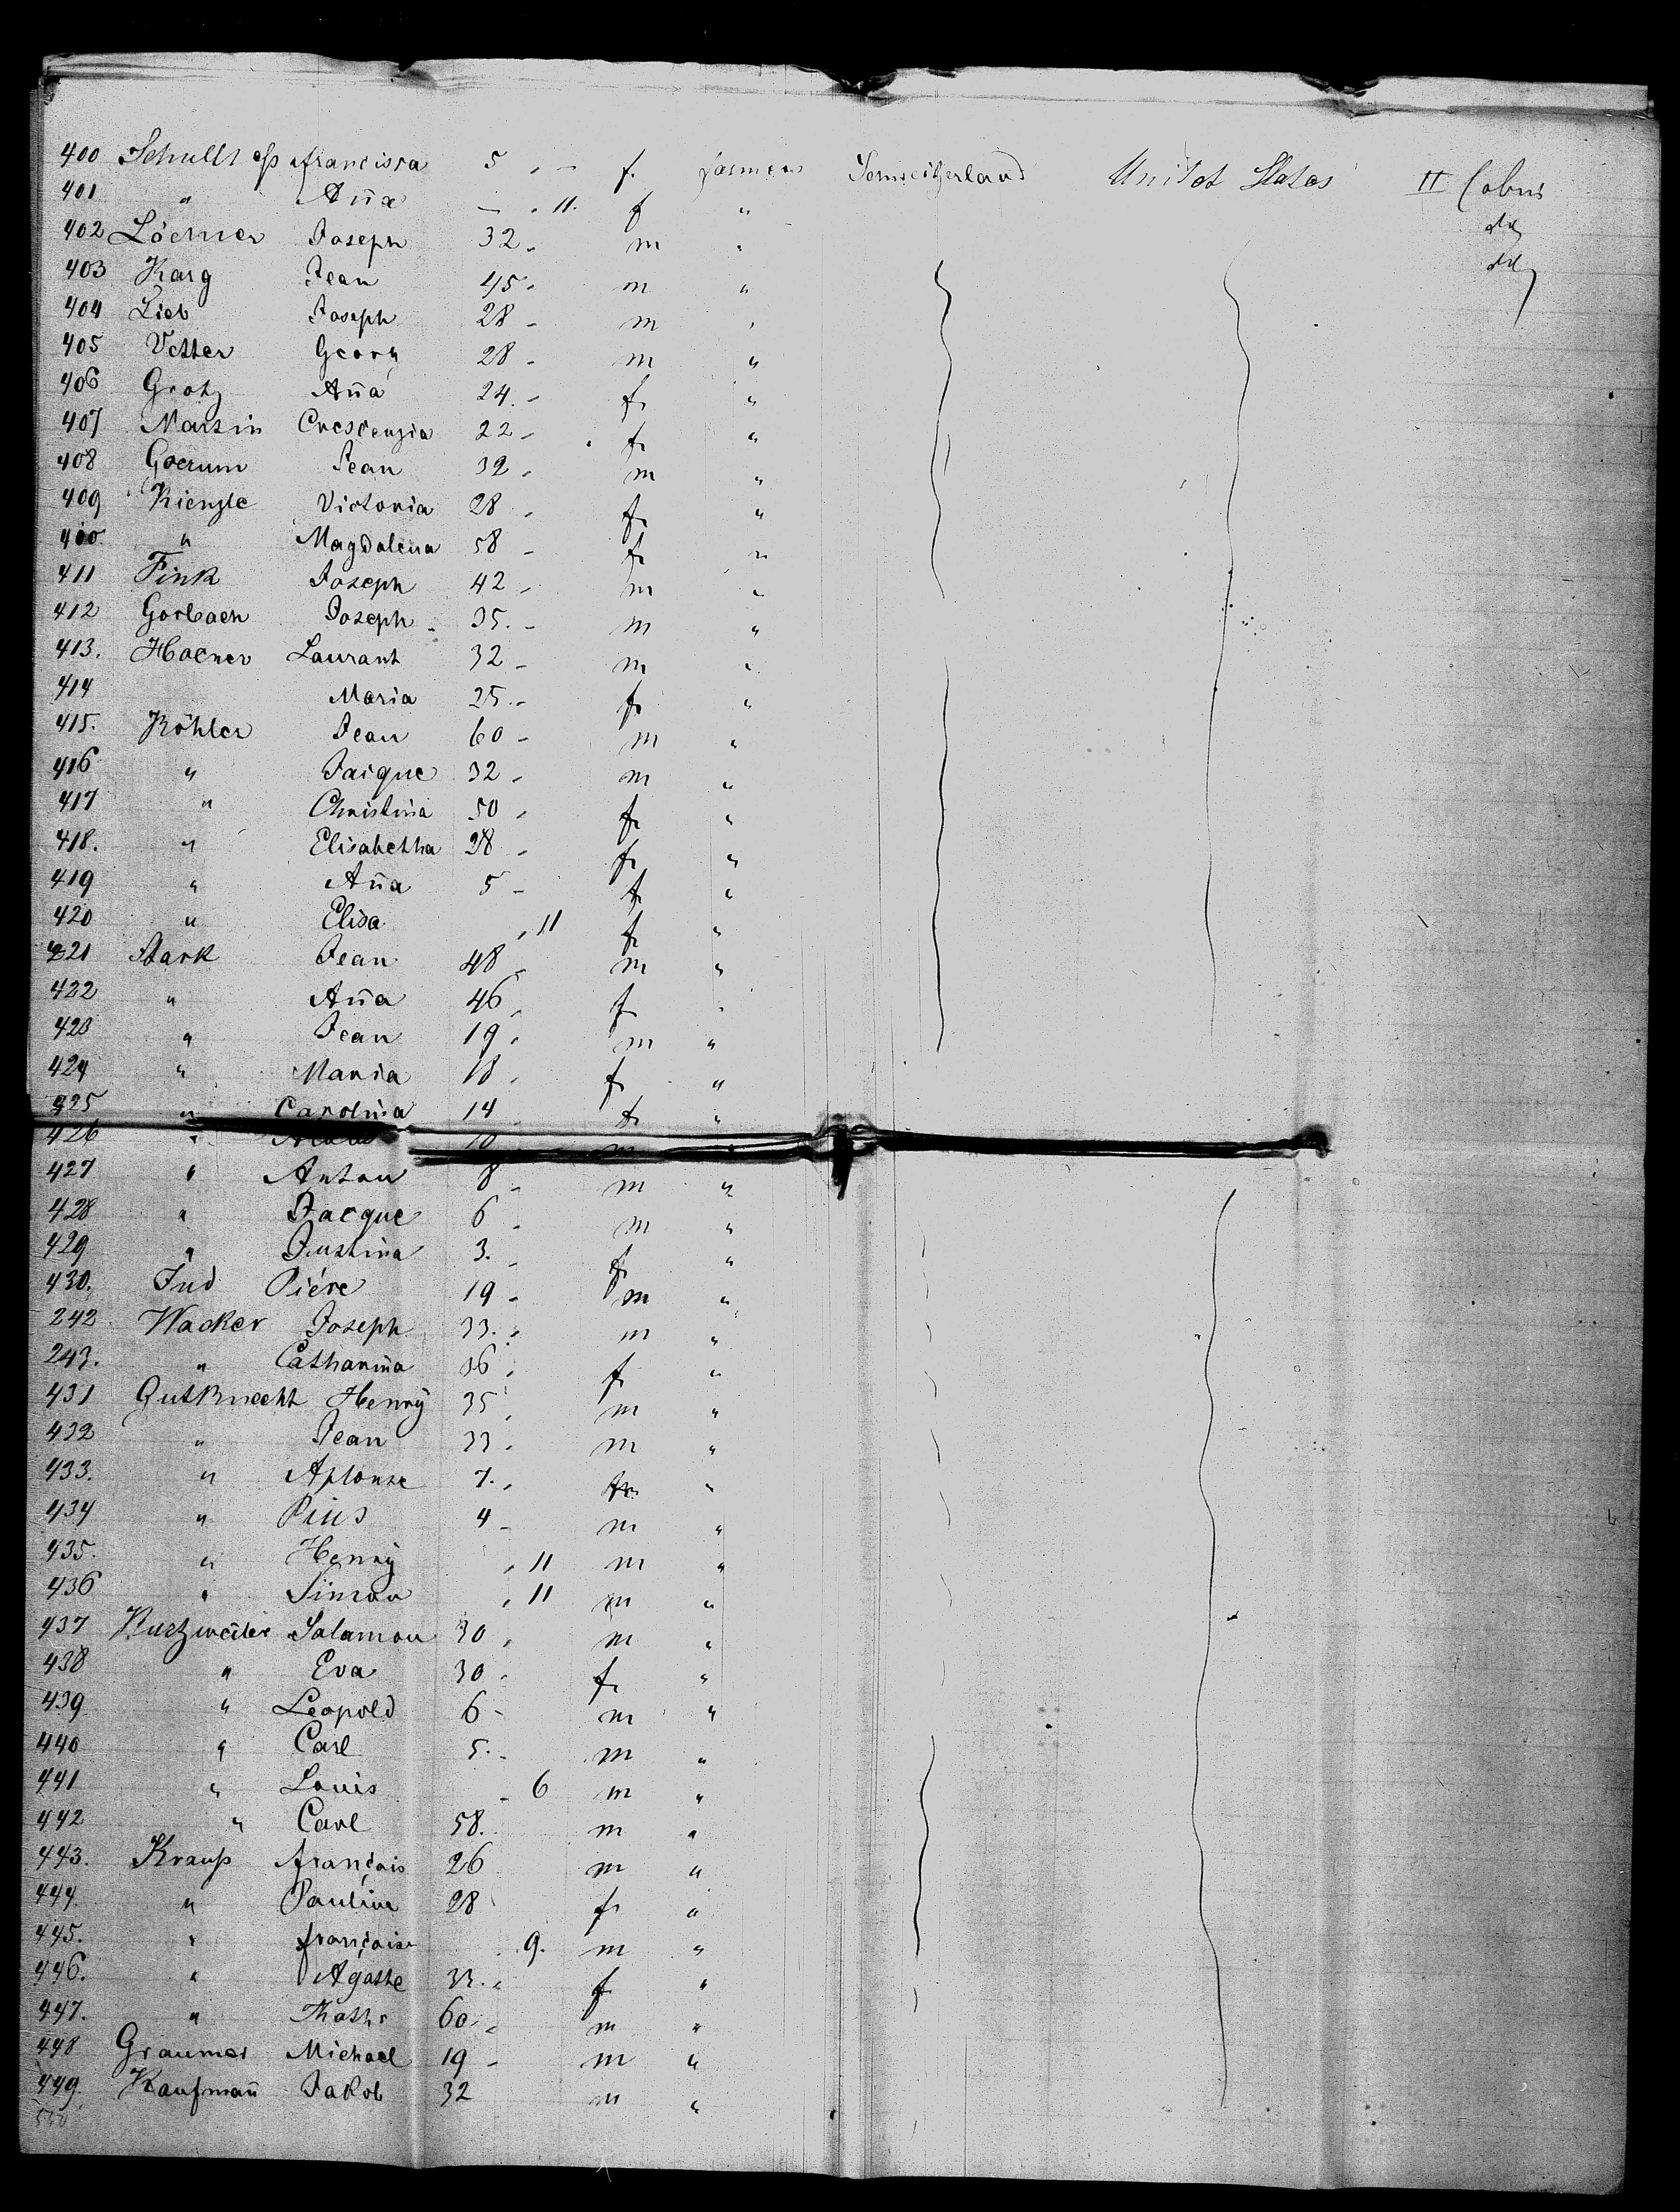 400 francisca 5 , - f. farmers Schweitzerland Unitet States II Cabin
401 " Aña - , 11. f "
402 Löchner Joseph 32 - m " do
403 Karg Jean 45 - m " do
404 Lieb Joseph 28 - m "
405 Vetter Georg 28 - m "
406 Grotz Aña 24. - f "
407 Martin Crescenzia 22 - f "
408 Goerum Jean 32 - m "
409 Kienzle Victoria 28 - f "
410 " Magdalena 58 - f "
411 Fink Joseph 42 - m "
412 Gorbach Joseph 35. - m "
413. Haener Laurant 32 - m "
414 Maria 25. - f "
415. Köhler Jean 60 - m "
416 " Jaique 32 - m "
417 " Christina 50 - f "
418. " Elisabetha 28 - f "
419 " Aña 5 - f "
420 " Elisa , 11 f "
421 Stark Jean 48 - m "
422 " Aña 46 - f "
423 " Jean 19 - m "
424 " Maria 18 - f "
425 " Carolina 14 f "
426 " 10 m "
427 " Anton 8 - m "
428 " Jacque 6 - m "
429 " Justina 3. - f "
430. Jud Piére 19 - m "
242 Wacker Joseph 33. - m "
243. " Catharina 36 - f "
431 Gutknecht Henry 35 - m "
432 " Jean 33 - m "
433. " Aplonse 7. - "
434 " Pius 4 - m "
435. " Henry , 11 m "
436 " Simon , 11 m "
437 Kurzweiler Salamon 30 - m "
438 " Eva 30 - f "
439 " Leopold 6 - m "
440 " Carl 5. - m "
441 " Louis - 6 m "
442 " Carl 58. m "
443. Krauß français 26 m "
444. " Paulina 28 f "
445. " française 9. m "
446. " Agathe 33. - f "
447. " 60 - m "
448 Graumer Michael 19 - m "
449. Kaufmañ Jakob 32 m "